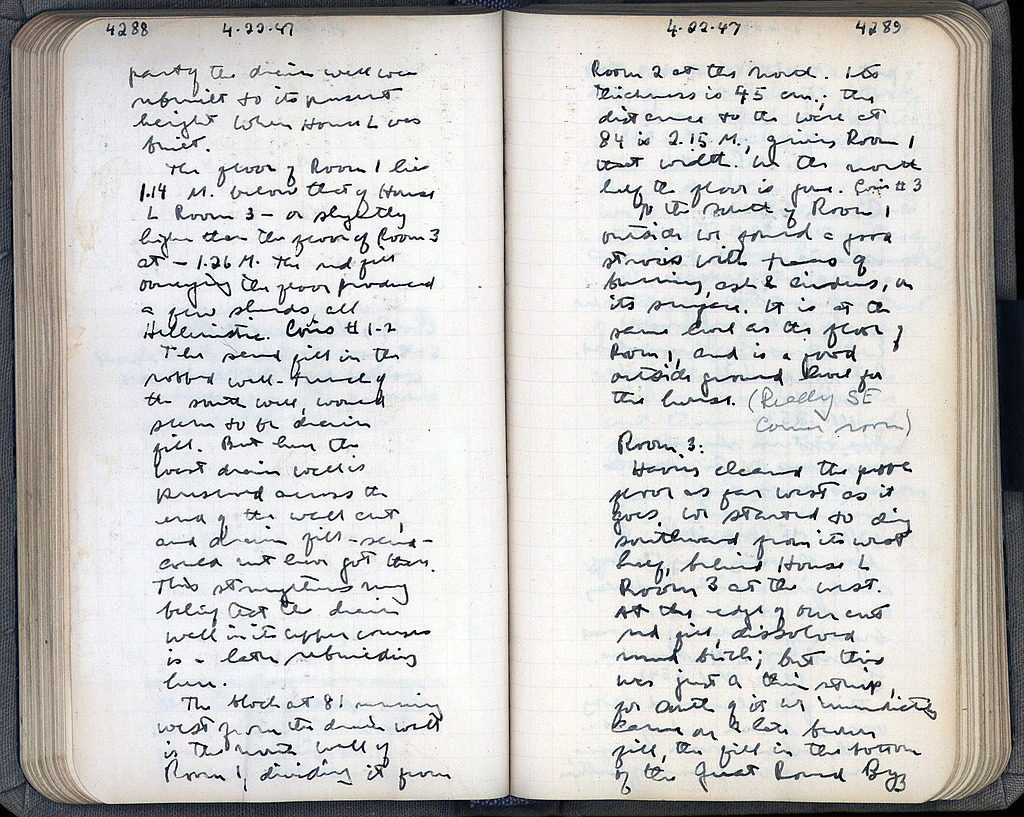 4288 4-22-47
party the drain wall was
rebuilt to its present
height when House L was
built.
The floor of Room 1 lies
1.14 M. below that of House
L Room 3 - or slightly
higher than the floor of Room 3
at - 1.26 M. The red fill
overlying the floor produced
a few sherds, all
Hellenistic. Coins #1-2
The sand fill in the
robbed wall-trench of
the south wall, would
seem to be drain
fill. But here the
west drain wall is
preserved across the
end of the wall cut,
and drain fill - sand -
could not have got there.
This strengthens my
belief that the drain
wall in its upper courses
is a later rebuilding
here.
The block at 81 running
west from the drain wall
is the north wall of
Room 1, dividing it from
4-22-47 4289
Room 2 at the north. Its
thickness is 45 cm.; the
distance to the wall at
84 is 2.15 M., giving Room 1
that width. In the north
half the floor is gone. Coin #3
To the south of Room 1
outside we found a good
stroses with traces of
burning, ash & cinders, on
its surface. It is at the
same level as the floor of
Room 1, and is a good
outside ground level for
the house. (Really SE
Corner room)
Room 3:
Having cleared the
floor as far west as it
goes, we started to dig
southward from its west
half, behind House L
Room 3 at the west.
At the edge of our cut
red fill, dissolved
mud brick; but this
was just a thin strip,
for south of it we immediately
came on a late brown
fill, the fill in the bottom
of the Great Round Bg